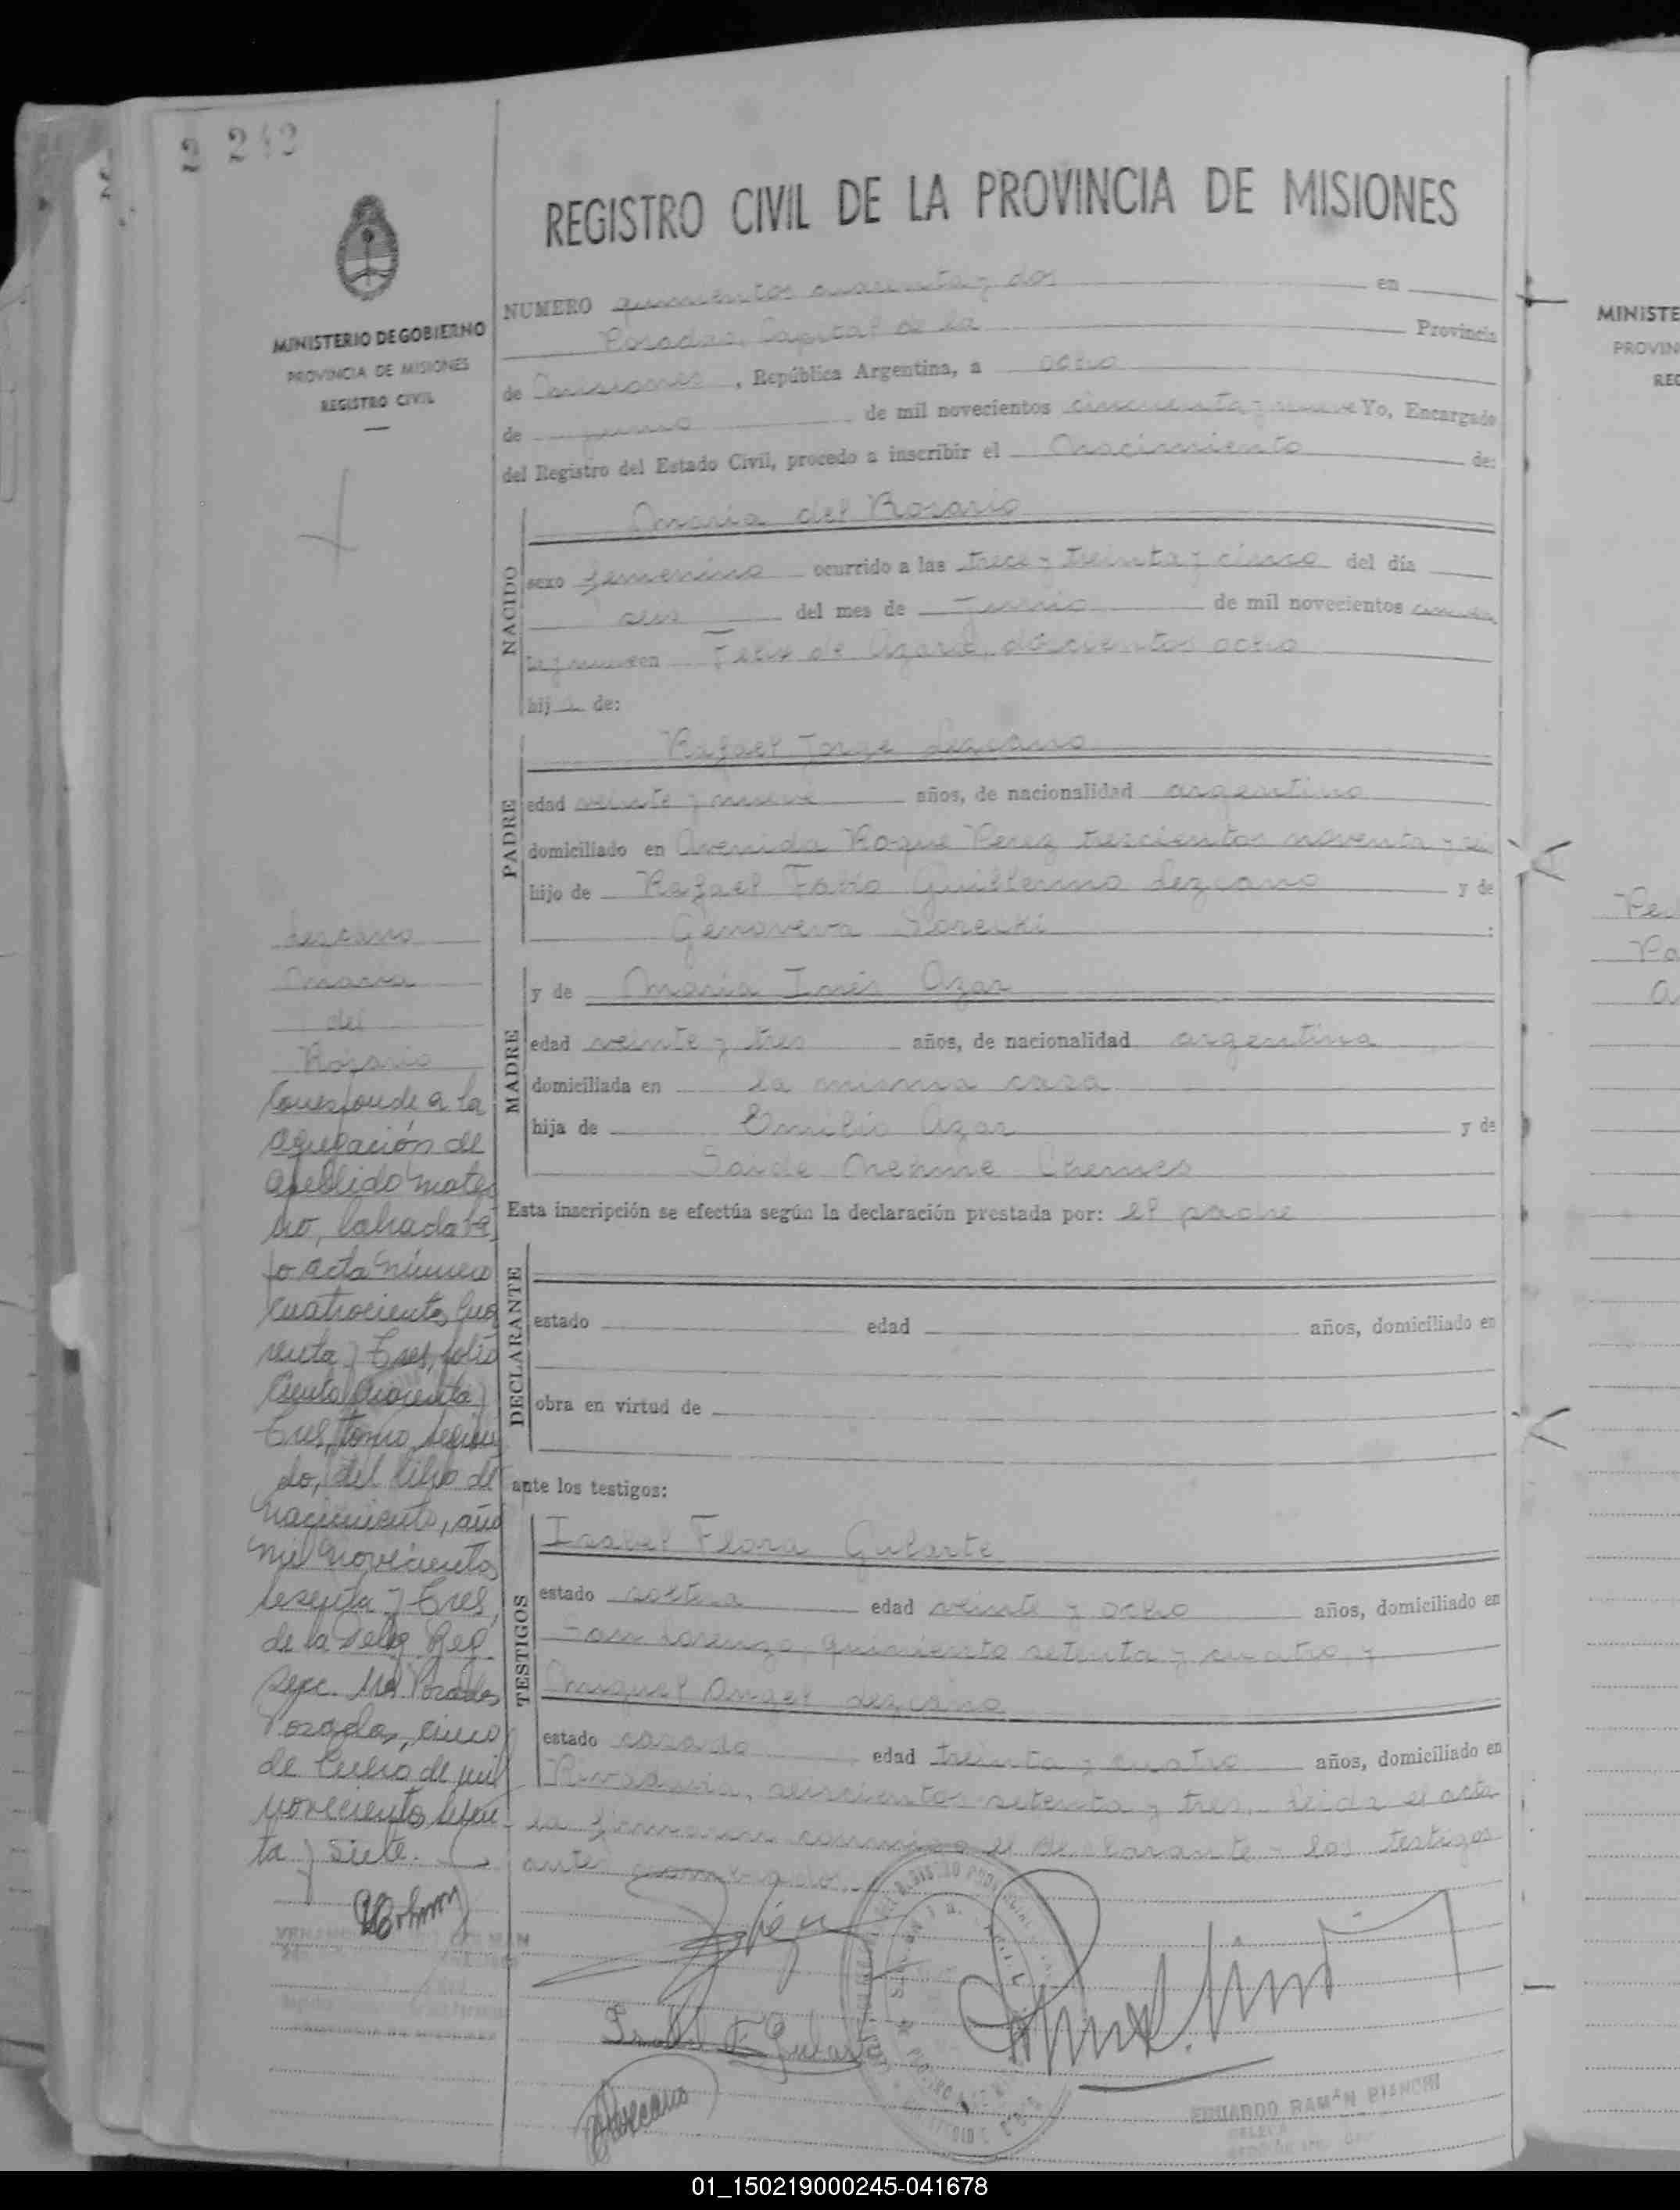 2 242
REGISTRO CIVIL DE LA PROVINCIA DE MISIONES
MINISTERIO DE GOBIERNO
PROVINCIA DE MISIONES
REGISTRO CIVIL
NUMERO quinientos cuarenta y dos en
Posadas, Capital de la Provincia
de Misiones, República Argentina, a ocho
de junio de mil novecientos cincuenta y nueve Yo, Encargado
del Registro del Estado Civil, procedo a inscribir el Nacimiento de:
NACIDO
María del Rosario
sexo femenino ocurrido a las trece y treinta y cinco del día
seis del mes de Junio de mil novecientos cincuen
ta y nueve en Felix de Azara, doscientos ocho
hija de:
PADRE
Rafael Jorge Lezcano
edad veinte y nueve años, de nacionalidad argentino
domiciliado en Avenida Roque Perez trescientos noventa y
hijo de Rafael Fabio Guillermo Lezcano y de
Genoveva
MADRE
y de María Inés Azar
edad veinte y tres años, de nacionalidad argentina
domiciliada en la misma casa
hija de Emilio Azar y de
Saide Chemes
Esta inscripción se efectúa según la declaración prestada por: el padre
DECLARANTE
estado edad años, domiciliado en
obra en virtud de
ante los testigos:
TESTIGOS
Isabel Flora Gularte
estado soltera edad veinte y ocho años, domiciliado en
San Lorenzo, quiniento setenta y cuatro, y
Miguel Angel Lezcano
estado casado edad treinta y cuatro años, domiciliado en
Rivadavia, seiscientos setenta y tres. Leida el acta
la firmaron conmigo el declarante y los testigos
antes nombrados.
Lezcano
María
del
Rosario
Corresponde a la
agregación de
apellido mater
no, labrada ba
jo acta número
cuatrocientos cua
renta y tres, folio
ciento
tres, tomo segun
do, del libro de
nacimiento, año
mil novecientos
sesenta y tres,
de la Deleg. Reg.
Secc. Posadas
Posadas, cinco
de Julio de mil
novecientos seten
ta y siete.
Isabel F Gularte
Lezcano
EDUARDO RAMON BIANCHI
MINISTE
PROVIN
REG
01_150219000245-041678